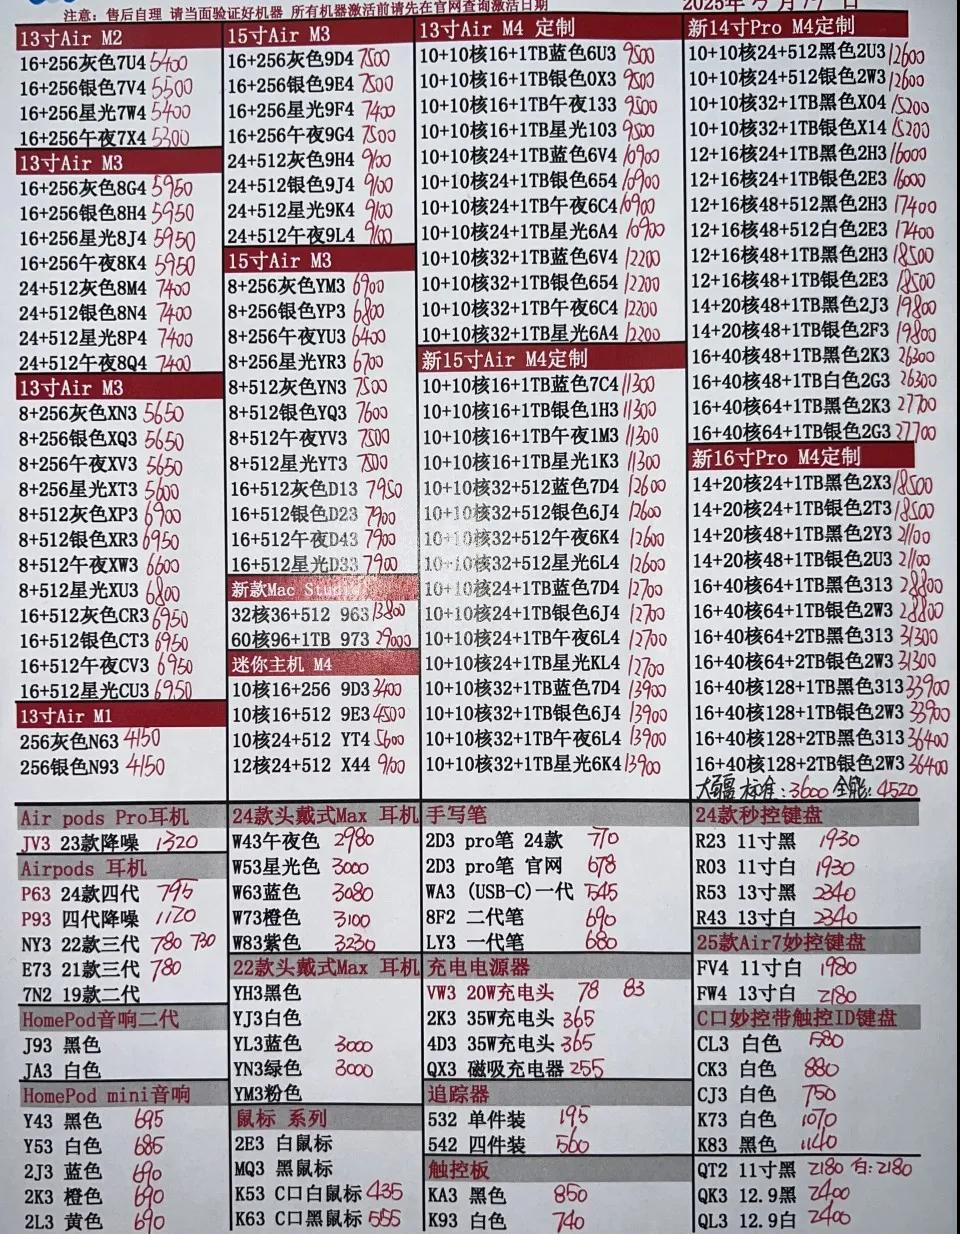 注意: 售后自理 请当面验证好机器 所有机器激活前请先在官网查询激活日期
2025年 5月17日
13寸Air M2
16+256灰色7U4 5400
16+256银色7V4 5500
16+256星光7W4 5400
16+256午夜7X4 5300
13寸Air M3
16+256灰色8G4 5950
16+256银色8H4 5950
16+256星光8J4 5950
16+256午夜8K4 5950
24+512灰色8M4 7400
24+512银色8N4 7400
24+512星光8P4 7400
24+512午夜8Q4 7400
13寸Air M3
8+256灰色XN3 5650
8+256银色XQ3 5650
8+256午夜XV3 5650
8+256星光XT3 5600
8+512灰色XP3 6900
8+512银色XR3 6950
8+512午夜XW3 6600
8+512星光XU3 6800
16+512灰色CR3 6950
16+512银色CT3 6950
16+512午夜CV3 6950
16+512星光CU3 6950
13寸Air M1
256灰色N63 4150
256银色N93 4150
15寸Air M3
16+256灰色9D4 7500
16+256银色9E4 7500
16+256星光9F4 7400
16+256午夜9G4 7500
24+512灰色9H4 9100
24+512银色9J4 9100
24+512星光9K4 9100
24+512午夜9L4 9100
15寸Air M3
8+256灰色YM3 6900
8+256银色YP3 6800
8+256午夜YU3 6400
8+256星光YR3 6700
8+512灰色YN3 7500
8+512银色YQ3 7600
8+512午夜YV3 7500
8+512星光YT3 7500
16+512灰色D13 7950
16+512银色D23 7900
16+512午夜D43 7900
16+512星光D33 7900
新款Mac Studio
32核36+512 963 13800
60核96+1TB 973 29000
迷你主机 M4
10核16+256 9D3 3400
10核16+512 9E3 4500
10核24+512 YT4 5600
12核24+512 X44 9100
13寸Air M4 定制
10+10核16+1TB蓝色6U3 9500
10+10核16+1TB银色0X3 9500
10+10核16+1TB午夜133 9500
10+10核16+1TB星光103 9500
10+10核24+1TB蓝色6V4 10900
10+10核24+1TB银色654 10900
10+10核24+1TB午夜6C4 10900
10+10核24+1TB星光6A4 10900
10+10核32+1TB蓝色6V4 12200
10+10核32+1TB银色654 12200
10+10核32+1TB午夜6C4 12200
10+10核32+1TB星光6A4 12200
新15寸Air M4定制
10+10核16+1TB蓝色7C4 11300
10+10核16+1TB银色1H3 11300
10+10核16+1TB午夜1M3 11300
10+10核16+1TB星光1K3 11300
10+10核32+512蓝色7D4 12600
10+10核32+512银色6J4 12600
10+10核32+512午夜6K4 12600
10+10核32+512星光6L4 12600
10+10核24+1TB蓝色7D4 12700
10+10核24+1TB银色6J4 12700
10+10核24+1TB午夜6L4 12700
10+10核24+1TB星光KL4 12700
10+10核32+1TB蓝色7D4 13900
10+10核32+1TB银色6J4 13900
10+10核32+1TB午夜6L4 13900
10+10核32+1TB星光6K4 13900
新14寸Pro M4定制
10+10核24+512黑色2U3 12600
10+10核24+512银色2W3 12600
10+10核32+1TB黑色X04 15200
10+10核32+1TB银色X14 15200
12+16核24+1TB黑色2H3 16000
12+16核24+1TB银色2E3 16000
12+16核48+512黑色2H3 17400
12+16核48+512白色2E3 17400
12+16核48+1TB银色2H3 18500
12+16核48+1TB银色2E3 18500
14+20核48+1TB黑色2J3 19800
14+20核48+1TB银色2F3 19800
16+40核48+1TB黑色2K3 26300
16+40核48+1TB白色2G3 26300
16+40核64+1TB黑色2K3 27700
16+40核64+1TB银色2G3 27700
新16寸Pro M4定制
14+20核24+1TB黑色2X3 18500
14+20核24+1TB银色2T3 18500
14+20核48+1TB黑色2Y3 21100
14+20核48+1TB银色2U3 21100
16+40核64+1TB黑色313 28800
16+40核64+1TB银色2W3 28800
16+40核64+2TB黑色313 31300
16+40核64+2TB银色2W3 31300
16+40核128+1TB黑色313 33900
16+40核128+1TB银色2W3 33900
16+40核128+2TB黑色313 36400
16+40核128+2TB银色2W3 36400
大疆 标准: 3600 全能: 4520
Air pods Pro耳机
JV3 23款降噪 1320
Airpods 耳机
P63 24款四代 795
P93 四代降噪 1120
NY3 22款三代 780 730
E73 21款三代 780
7N2 19款二代
HomePod音响二代
J93 黑色
JA3 白色
HomePod mini音响
Y43 黑色 695
Y53 白色 685
2J3 蓝色 690
2K3 橙色 690
2L3 黄色 690
24款头戴式Max 耳机
W43午夜色 2980
W53星光色 3000
W63蓝色 3080
W73橙色 3100
W83紫色 3230
22款头戴式Max 耳机
YH3黑色
YJ3白色
YL3蓝色 3000
YN3绿色 3000
YM3粉色
鼠标 系列
2E3 白鼠标
MQ3 黑鼠标
K53 C口白鼠标 435
K63 C口黑鼠标 555
手写笔
2D3 pro笔 24款 770
2D3 pro笔 官网 678
WA3 (USB-C)一代 545
8F2 二代笔 690
LY3 一代笔 680
充电电源器
VW3 20W充电头 78 83
2K3 35W充电头 365
4D3 35W充电头 365
QX3 磁吸充电器 255
追踪器
532 单件装 195
542 四件装 560
触控板
KA3 黑色 850
K93 白色 740
24款秒控键盘
R23 11寸黑 1930
R03 11寸白 1930
R53 13寸黑 2340
R43 13寸白 2340
25款Air7妙控键盘
FV4 11寸白 1980
FW4 13寸白 2180
C口妙控带触控ID键盘
CL3 白色 580
CK3 白色 880
CJ3 白色 750
K73 白色 1070
K83 黑色 1140
QT2 11寸黑 2180 白: 2180
QK3 12.9黑 2400
QL3 12.9白 2400